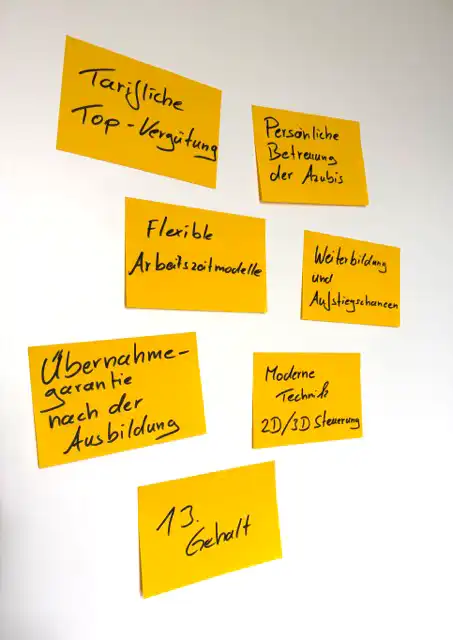 Tarifliche
Top-Vergütung
Persönliche
Betreuung
der Azubis
Flexible
Arbeitszeitmodelle
Weiterbildung
und
Aufstiegschancen
Übernahme-
garantie
nach der
Ausbildung
Moderne
Technik
2D/3D Steuerung
13.
Gehalt